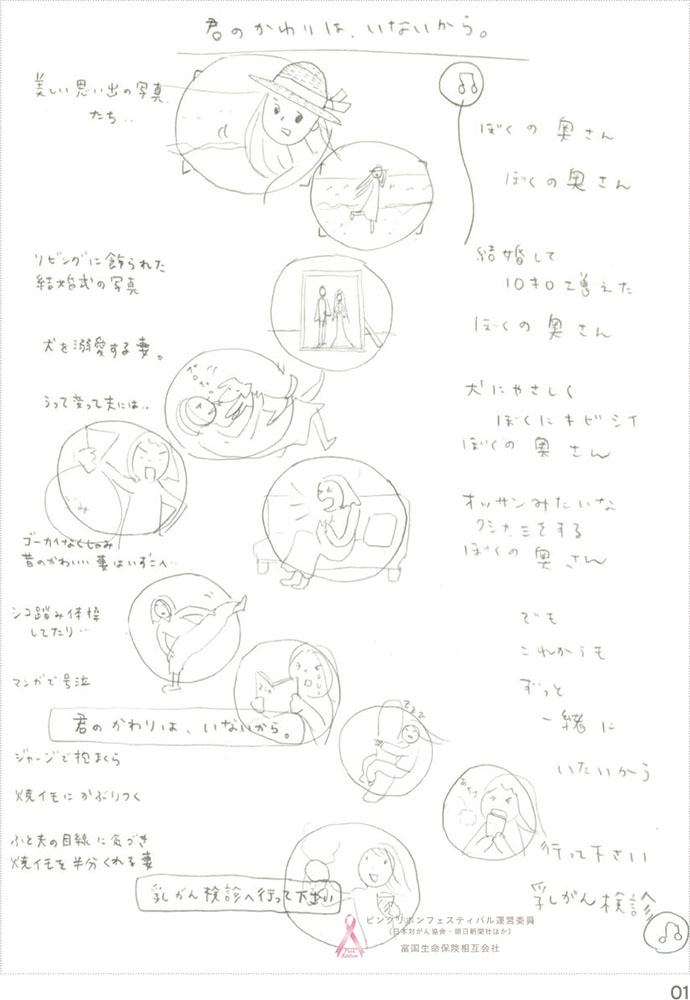 君のかわりは、いないから。
美しい思い出の写真
たち‥
ぼくの奥さん
ぼくの奥さん
リビングに飾られた
結婚式の写真
結婚して
10キロ増えた
ぼくの奥さん
犬を溺愛する妻。
うって変って夫には‥
犬にやさしく
ぼくにキビシイ
ぼくの奥さん
ごみ
ゴーカイなくしゃみ
昔のかわいい妻はいずこへ‥
オッサンみたいな
クシャミをする
ぼくの奥さん
シコ踏み体操
してたり‥
マンガで号泣
でも
これからも
ずっと
一緒に
いたいから
君のかわりは、いないから。
ジャージで抱まくら
焼イモにかぶりつく
ふと夫の目線に気づき
焼イモを半分くれる妻
行って下さい
乳がん検診
乳がん検診へ行って下さい
ピンクリボンフェスティバル運営委員
(日本対がん協会・朝日新聞社ほか)
富国生命保険相互会社
Pink
Ribbon
01